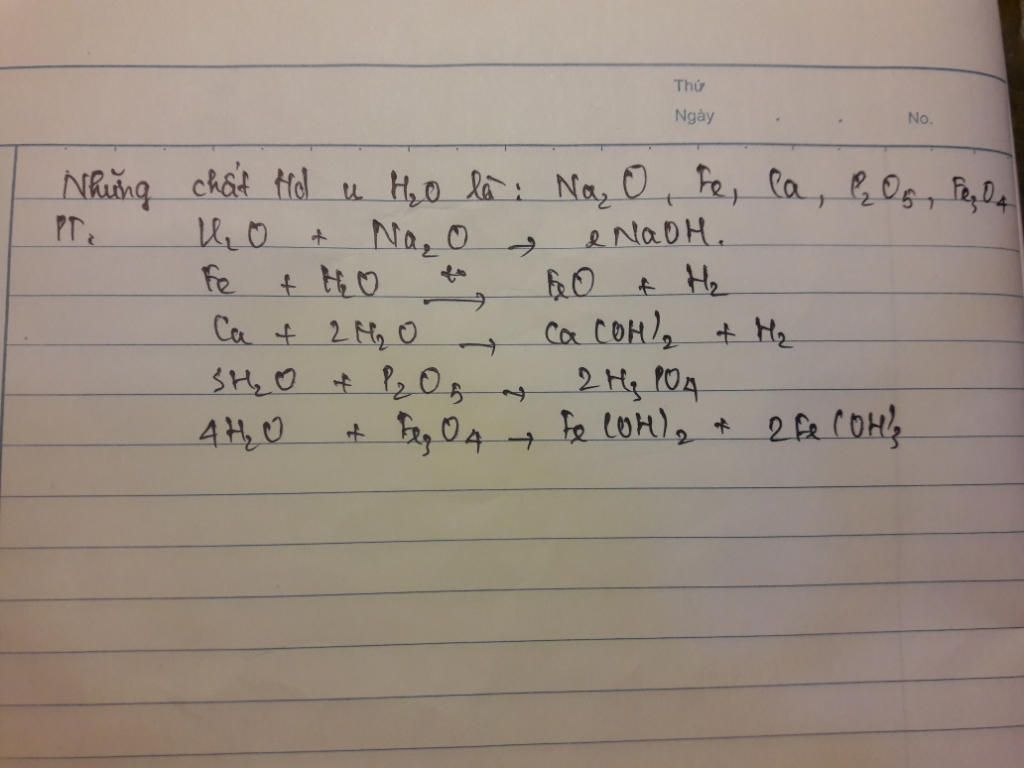 Thứ
Ngày . . No.
Những chất td u H₂O là: Na₂O, Fe, Ca, P₂O₅, Fe₃O₄
PT: H₂O + Na₂O → 2NaOH.
Fe + H₂O →(t°) FeO + H₂
Ca + 2H₂O → Ca(OH)₂ + H₂
3H₂O + P₂O₅ → 2H₃PO₄
4H₂O + Fe₃O₄ → Fe(OH)₂ + 2Fe(OH)₃